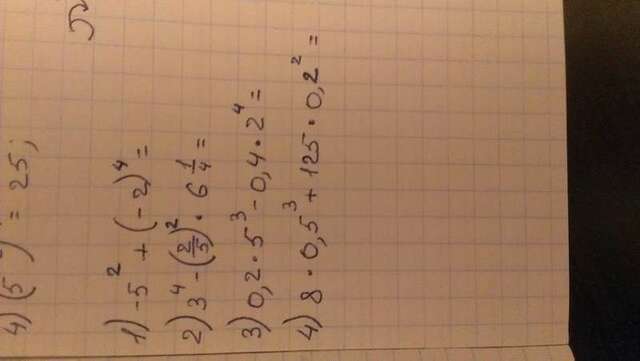 4) (5 ) = 25;
1) -5² + (-2)⁴ =
2) 3⁴ - (2/5)² · 6 1/4 =
3) 0,2 · 5³ - 0,4 · 2⁴ =
4) 8 · 0,5³ + 125 · 0,2² =